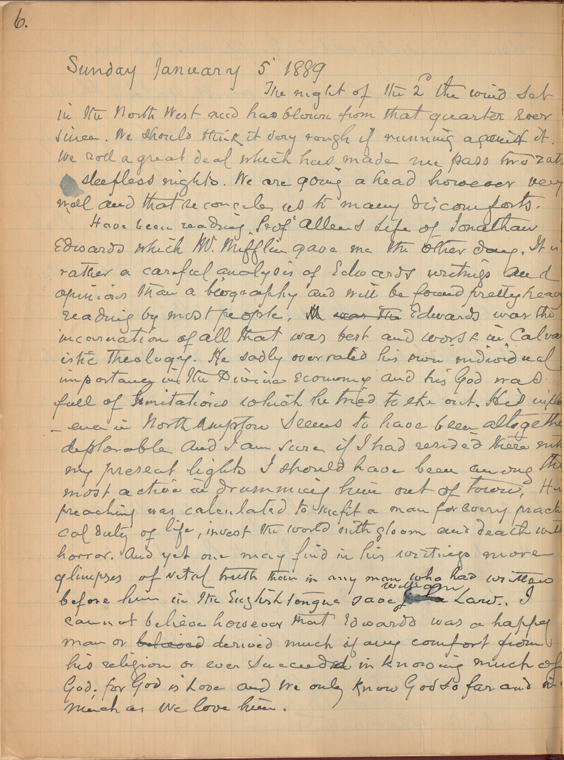 6.
Sunday January 5 1889
The night of the 2d the wind set
in the North West and has blown from that quarter ever
since. We should think it very rough if running against it.
We roll a great deal which has made me pass two rath
sleepless nights. We are going a head however very
well and that reconciles us to many discomforts.
Have been reading Prof Allens Life of Jonathan
Edwards which Mr Mifflin gave me the other day. It is
rather a careful analysis of Edwards writings and
opinions than a biography and will be found pretty heavy
reading by most people. He was the Edwards was the
incarnation of all that was best and worse in Calvin
istic Theology. He sadly overrated his own individual
importance in the Divine Economy and his God was
full of limitations which he tried to eke out. His
even in Northampton seems to have been altogethe
deplorable and I am sure if I had resided there with
my present lights I should have been among the
most active in drumming him out of town. His
preaching was calculated to unfit a man for every practi
cal duty of life, invest the world with gloom and death with
horror. And yet one may find in his writings more
glimpses of vital truth than in any man who had written
before him in the English tongue save William Law. I
cannot believe however that Edwards was a happy
man or derived much if any comfort from
his religion or ever succeeded in knowing much of
God. for God is Love and we only know God so far and in
much as we love him.